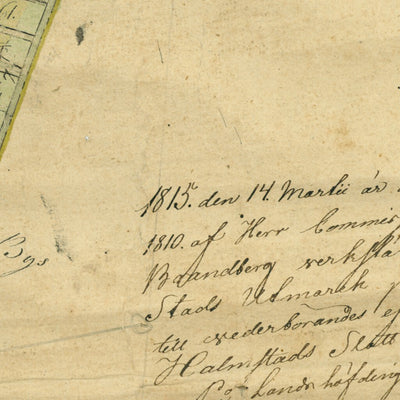 1815. den 14. Martii är
1810. af Herr Commis
Brandberg verkstä
Stads Utmark
till wederbörandes
Halmstads Slott
Landshöfding